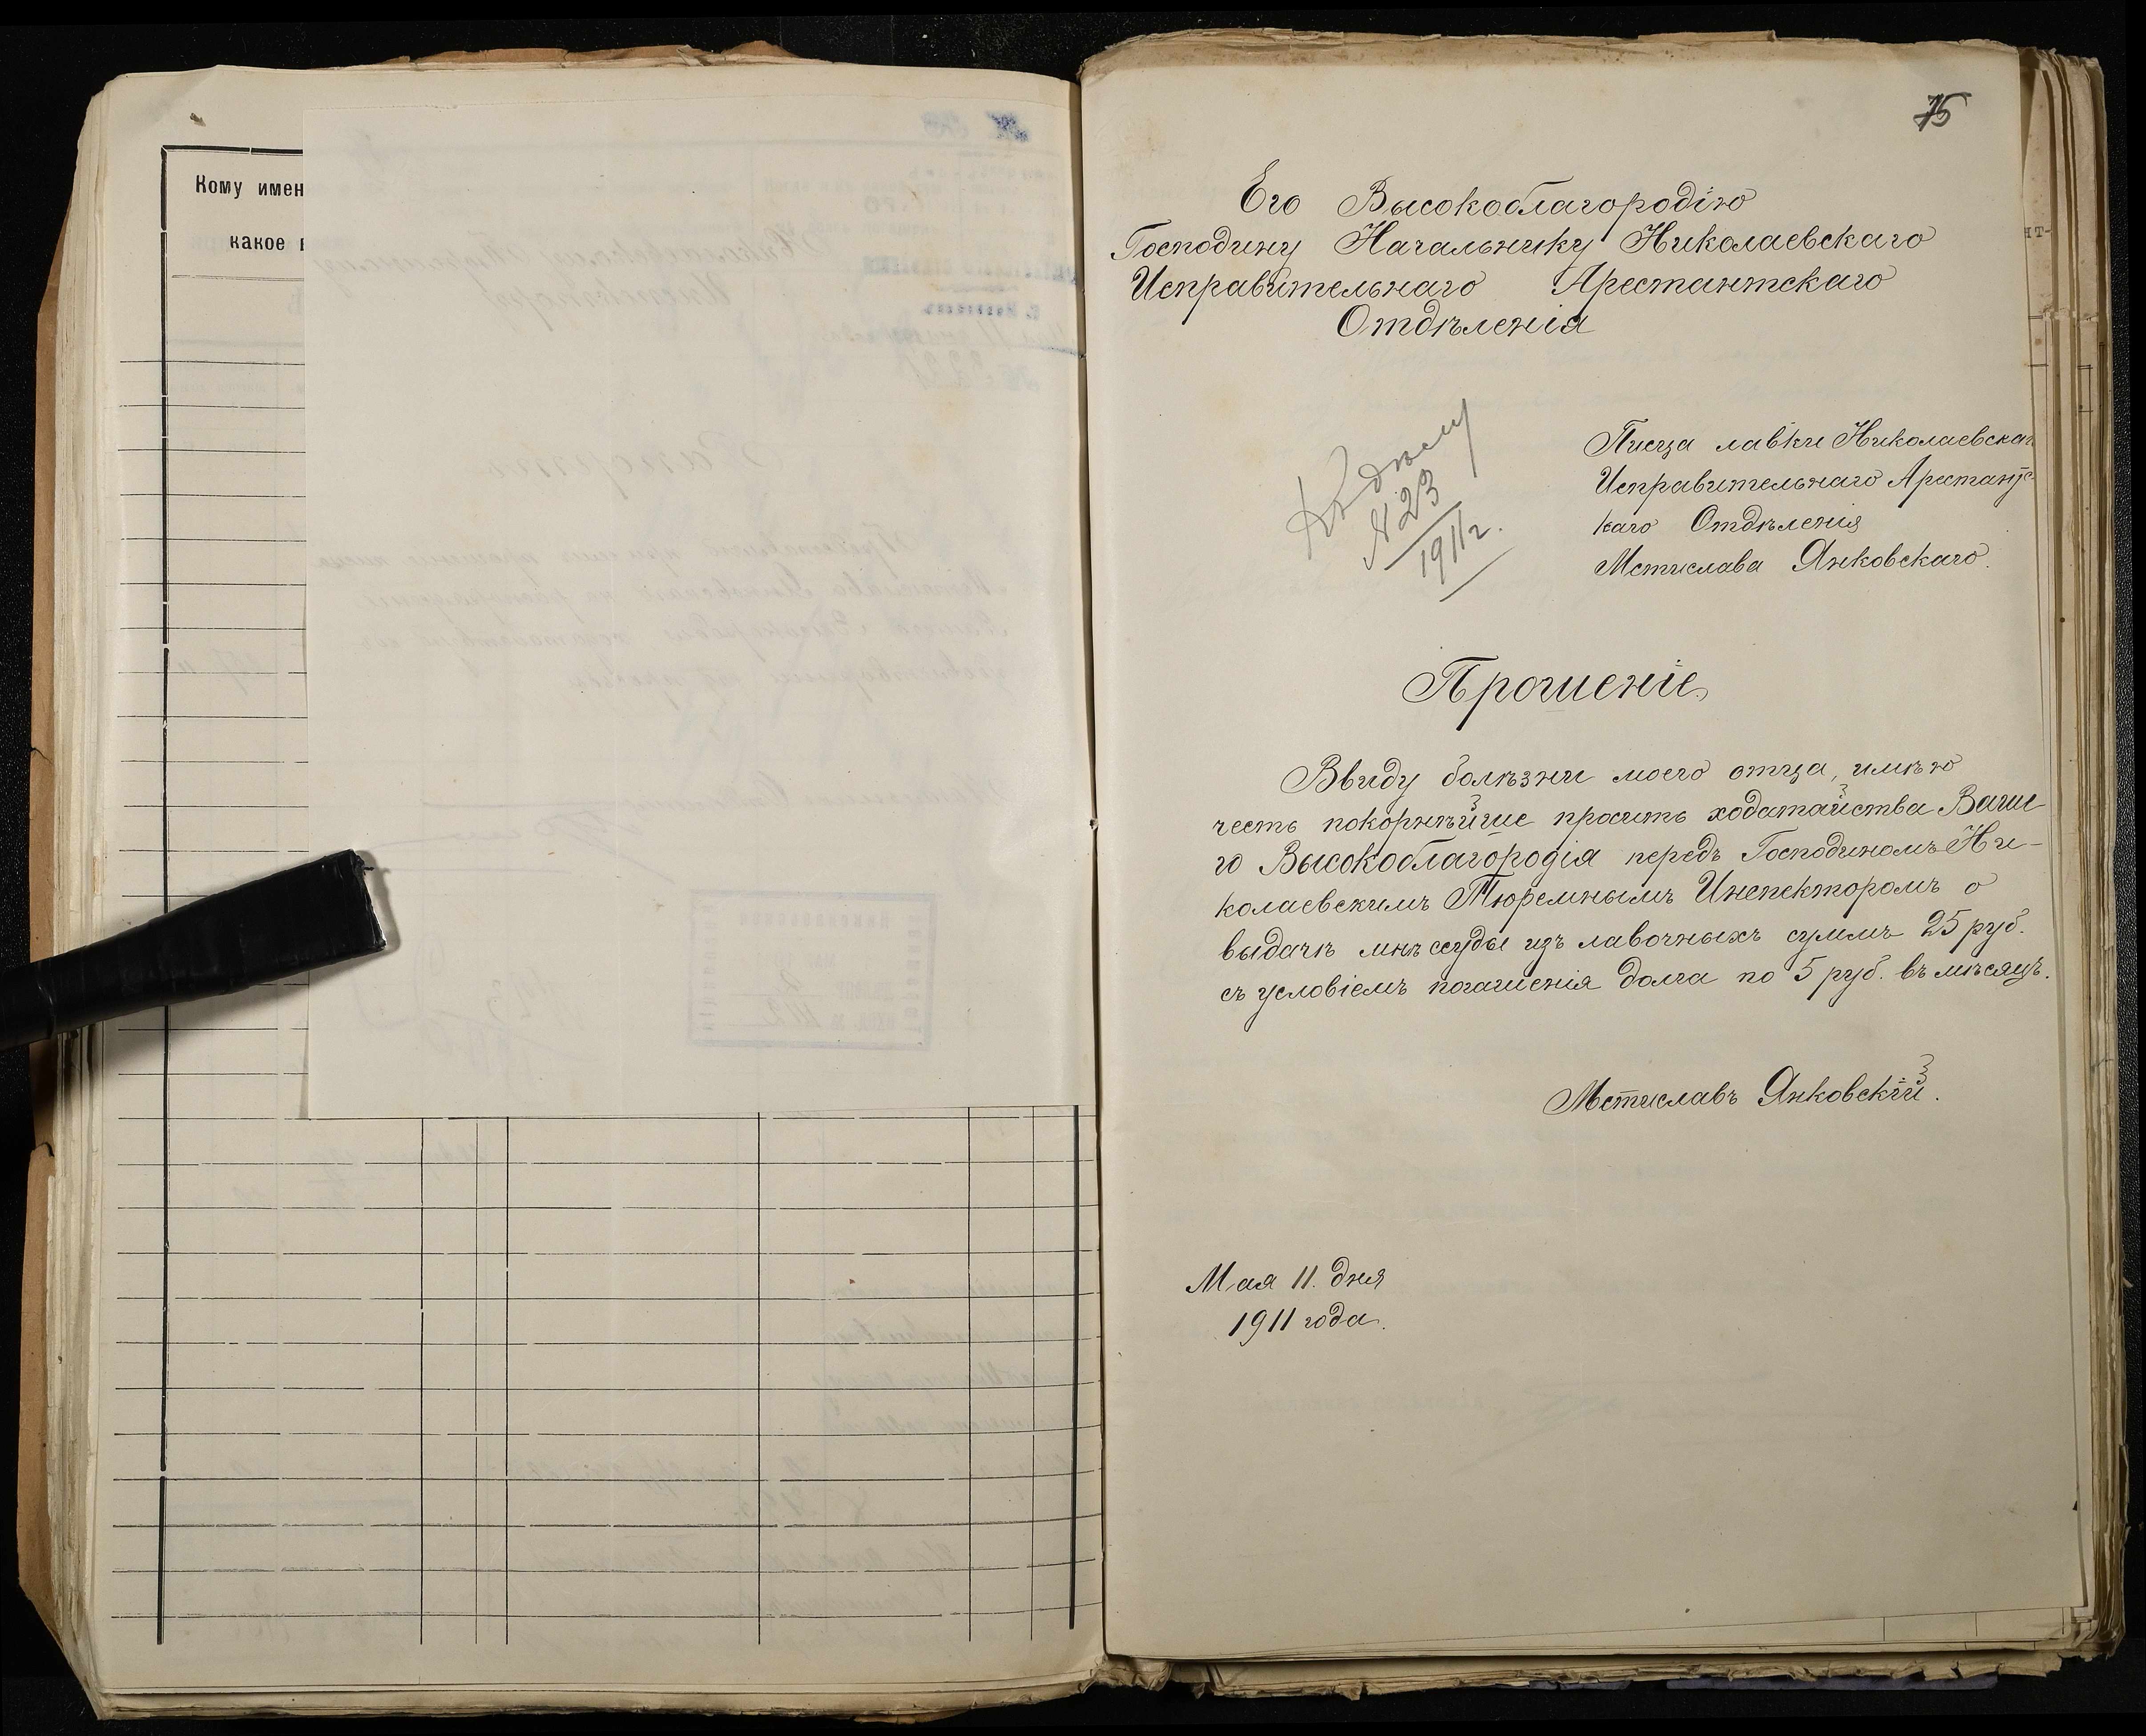 Кому имен
какое
75
Его Высокоблагородію
Господину Начальнику Николаевскаго
Исправительнаго Арестантскаго
Отдѣленія
Къ дѣлу
№ 23
1911 г.
Писца лавки Николаевскаг
Исправительнаго Арестантс-
каго Отдѣленія
Мстислава Янковскаго.
Прошеніе
Ввиду болѣзни моего отца, имѣю
честь покорнѣйше просить ходатайства Ваше
го Высокоблагородія передъ Господиномъ Ни-
колаевскимъ Тюремнымъ Инспекторомъ о
выдачѣ мнѣ ссуды изъ лавочныхъ суммъ 25 руб.
съ условіемъ погашенія долга по 5 руб. въ мѣсяцъ.
Мстиславъ Янковскій.
Мая 11. дня
1911 года.